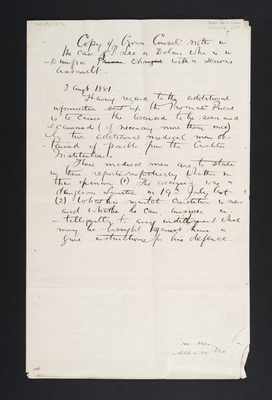 Copy of Crown Counsel's Note in
the case of P. Lee a Dolan, who is in
Dundrum charged with a serious
assault.
3 Augt 1891
Having regard to the additional
information sent up the Proviso
is to cause the accused to be seen and
examined if necessary more than once
by two additional medical men ob-
tained if possible from the
Institution.
These medical men are to state
in their reports respectively whether in
their opinion (1) The accused was a
dangerous lunatic on 19th July last
(2) What his mental condition is now
and whether he can answer in-
telligently to any indictment which
may be brought against him or
give instructions for his defence.